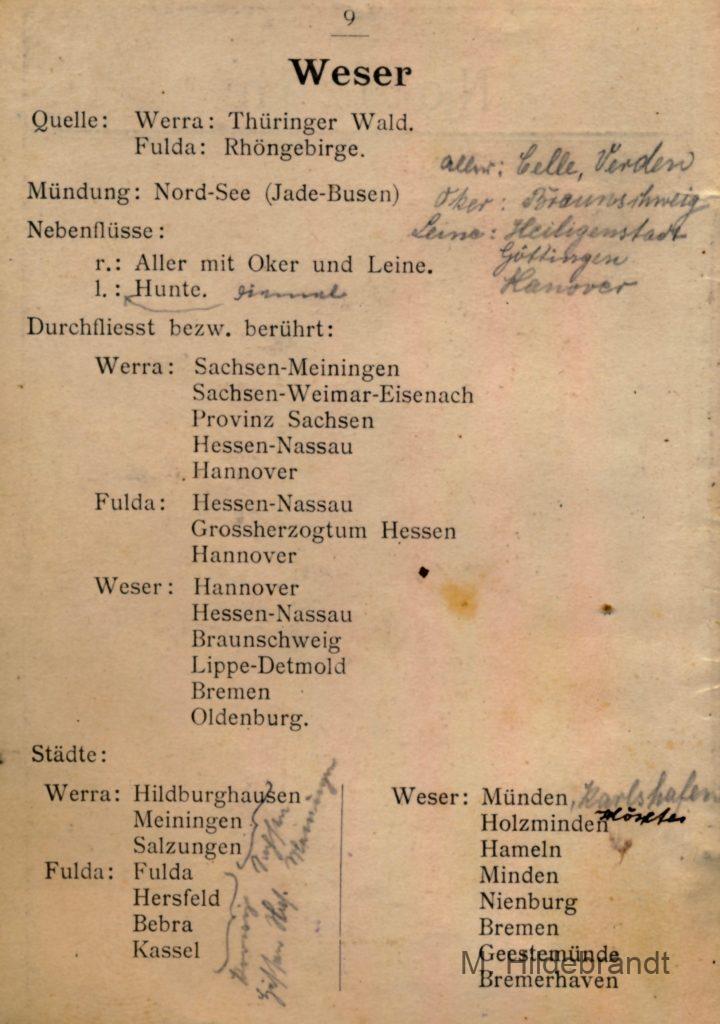 9
Weser
Quelle: Werra: Thüringer Wald.
Fulda: Rhöngebirge.
aller: Celle, Verden
Mündung: Nord-See (Jade-Busen)
Oker: Braunschweig
Nebenflüsse:
Leine: Heiligenstadt
Göttingen
r.: Aller mit Oker und Leine.
Hanover
l.: Hunte.
Durchfliesst bezw. berührt:
Werra: Sachsen-Meiningen
Sachsen-Weimar-Eisenach
Provinz Sachsen
Hessen-Nassau
Hannover
Fulda: Hessen-Nassau
Grossherzogtum Hessen
Hannover
Weser: Hannover
Hessen-Nassau
Braunschweig
Lippe-Detmold
Bremen
Oldenburg.
Städte:
Werra: Hildburghausen
Meiningen
Salzungen
Fulda: Fulda
Hersfeld
Bebra
Kassel
Meiningen
Weser: Münden, Karlshafen
Holzminden Höxter
Hameln
Minden
Nienburg
Bremen
Geestemünde
Bremerhaven
M. Hildebrandt